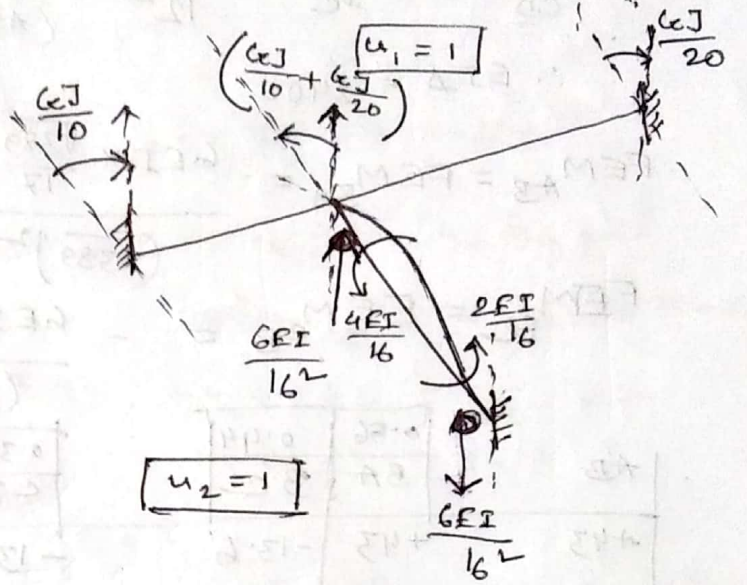 GJ/10
(GJ/10 + GJ/20)
u₁ = 1
GJ/20
6EI/16²
4EI/16
2EI/16
u₂ = 1
6EI/16²